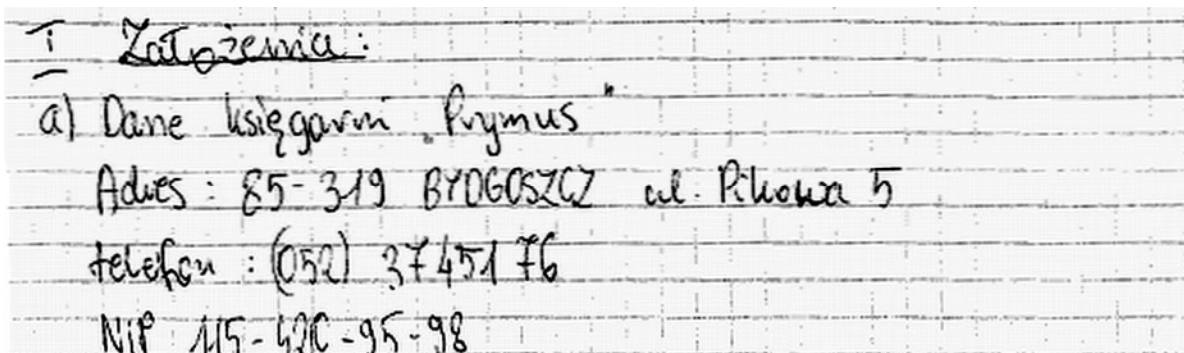 I Założenia:
a) Dane księgarni „Prymus"
Adres: 85-319 BYDGOSZCZ ul. Pikowa 5
telefon: (052) 3745176
NIP 115-420-95-98